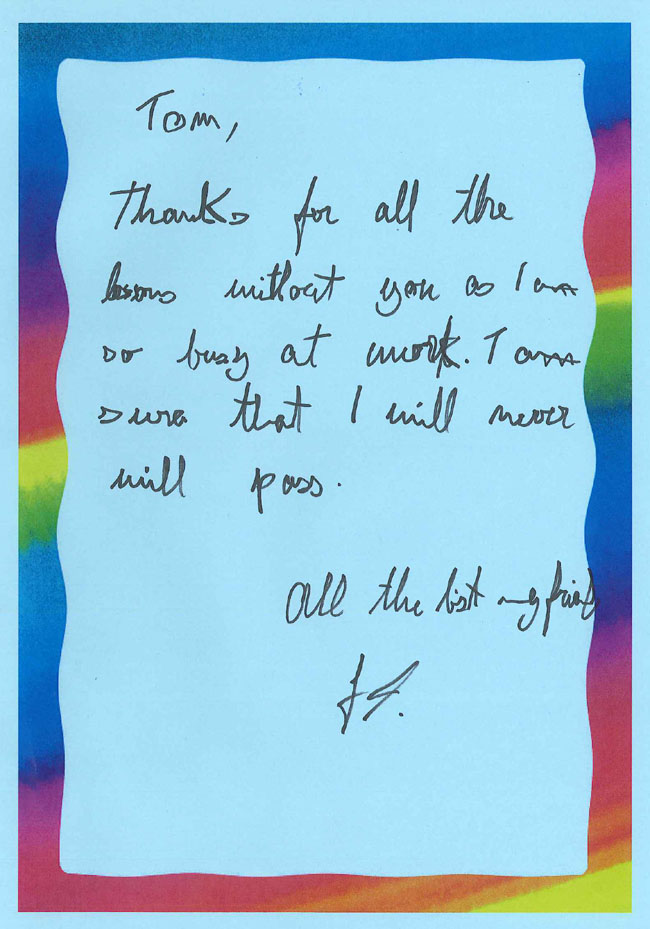 Tom,
Thanks for all the
lessons without you as I am
so busy at work. I am
sure that I will never
will pass.
All the best my friend